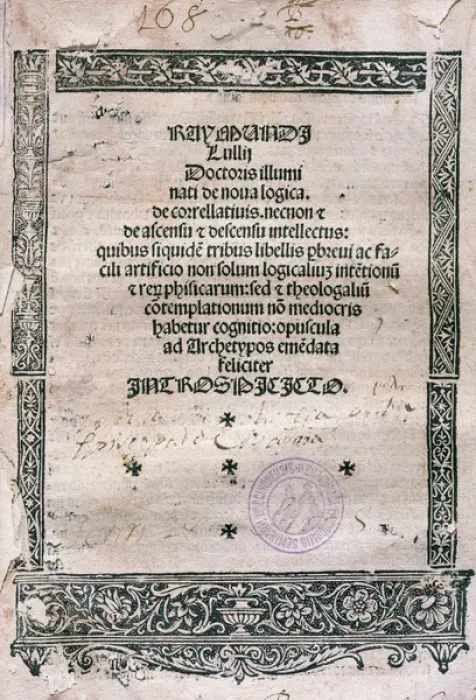 168
RAYMUNDI
Lullij
Doctoris illumi
nati de noua logica.
de correllatiuis. necnon ⁊
de ascensu ⁊ descensu intellectus:
quibus siquidē tribus libellis pbreui ac fa-
cili artificio non solum logicaliuz intētionū
⁊ reꝝ phisicarum: sed ⁊ theologaliū
cōtemplationum nō mediocris
habetur cognitio: opuscula
ad Archetypos emēdata
feliciter
INTROSPICICTO.